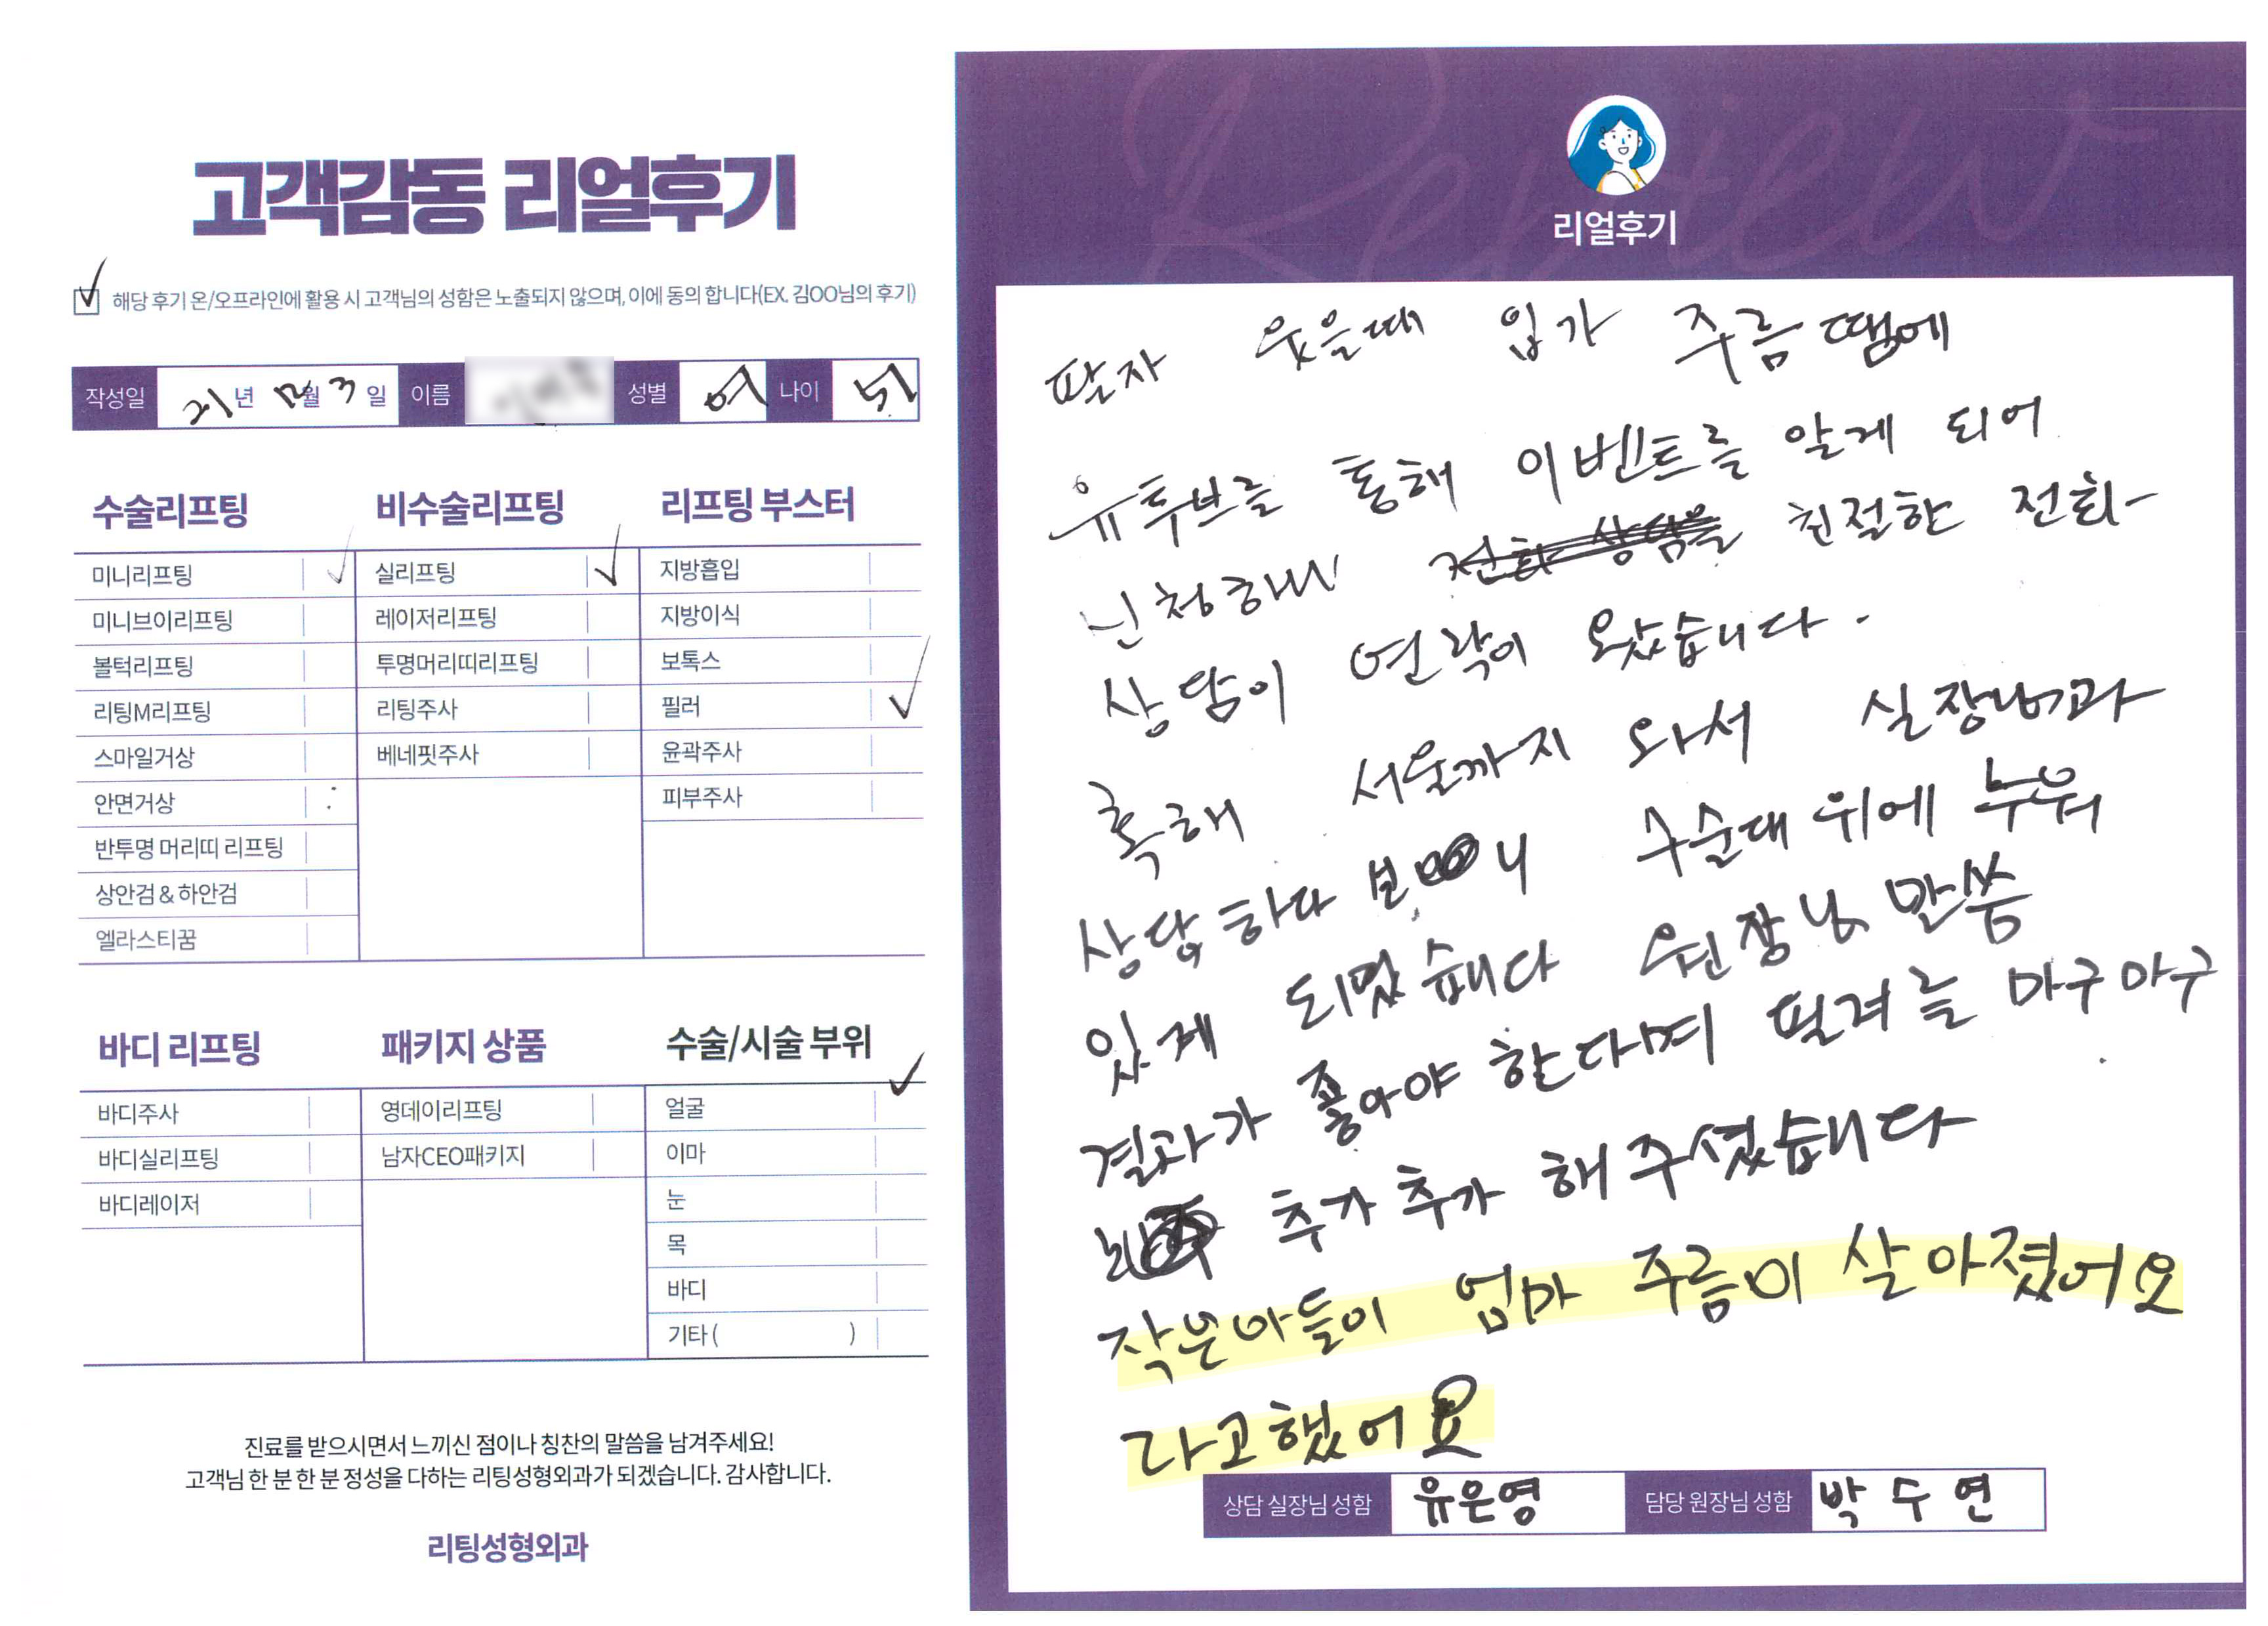 고객감동 리얼후기
해당 후기 온/오프라인에 활용 시 고객님의 성함은 노출되지 않으며, 이에 동의 합니다(EX. 김OO님의 후기)
작성일 21년 12월 3일 이름 성별 여 나이 51
수술리프팅
미니리프팅
미니브이리프팅
볼턱리프팅
리팅M리프팅
스마일거상
안면거상
반투명 머리띠 리프팅
상안검 & 하안검
엘라스티꿈
비수술리프팅
실리프팅
레이저리프팅
투명머리띠리프팅
리팅주사
베네핏주사
리프팅 부스터
지방흡입
지방이식
보톡스
필러
윤곽주사
피부주사
바디 리프팅
바디주사
바디실리프팅
바디레이저
패키지 상품
영데이리프팅
남자CEO패키지
수술/시술 부위
얼굴
이마
눈
목
바디
기타 ( )
진료를 받으시면서 느끼신 점이나 칭찬의 말씀을 남겨주세요!
고객님 한 분 한 분 정성을 다하는 리팅성형외과가 되겠습니다. 감사합니다.
리팅성형외과
Review
리얼후기
팔자 웃을때 입가 주름 땜에
유투브를 통해 이벤트를 알게 되어
신청하니 친절한 전화
상담이 연락이 왔습니다.
혹해 서울까지 와서 실장님과
상담하다 보니 수술대 위에 누워
있게 되었습니다 원장님 말씀
결과가 좋아야 한다며 필러를 마구마구
추가추가 해주셨습니다
작은아들이 엄마 주름이 살아졌어요
라고했어요
상담 실장님 성함 유은영 담당 원장님 성함 박수연